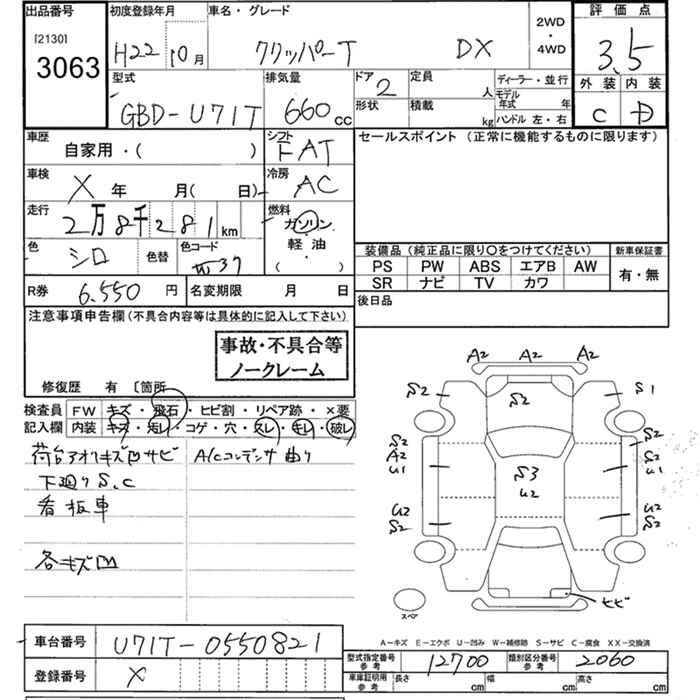 出品番号 初度登録年月 車名・グレード 2WD・4WD 評価点
[2130]
3063 H22 10月 クリッパーT DX 3.5
型式 排気量 ドア 定員 ディーラー・並行 外装 内装
GBD-U71T 660cc 2 人 モデル年式 年 C D
形状 積載 kg ハンドル 左・右
車歴 シフト セールスポイント (正常に機能するものに限ります)
自家用・( ) FAT
車検 冷房
X 年 月( 日) AC
走行 燃料
2万8千281km ガソリン・
色 色替 色コード 軽油・
シロ 37 ( )
装備品 (純正品に限り○をつけてください) 新車保証書
PS PW ABS エアB AW 有・無
SR ナビ TV カワ
R券 6.550円 名変期限 月 日 後日品
注意事項申告欄 (不具合内容等は具体的に記入して下さい)
事故・不具合等
ノークレーム
修復歴 有 〔箇所
検査員 FW キズ・飛石・ヒビ割・リペア跡・×要
記入欄 内装 キズ・汚レ・コゲ・穴・スレ・キレ・破レ
荷台アオリキズ凹サビ A/Cコンデンサ曲り
下廻りS,C
看板車
各キズ凹
A2 A2 A2
S2 S2 S1
S2 A2 U1 S3 U2 S2 U1
U2 S2 U2 S2
ヒビ
スペア
A－キズ E－エクボ U－凹み W－補修跡 S－サビ C－腐食 XX－交換済
車台番号 U71T-0550821
型式指定番号 参考 12700 類別区分番号 参考 2060
登録番号 X
車庫証明用 参考 長さ cm 幅 cm 高さ cm